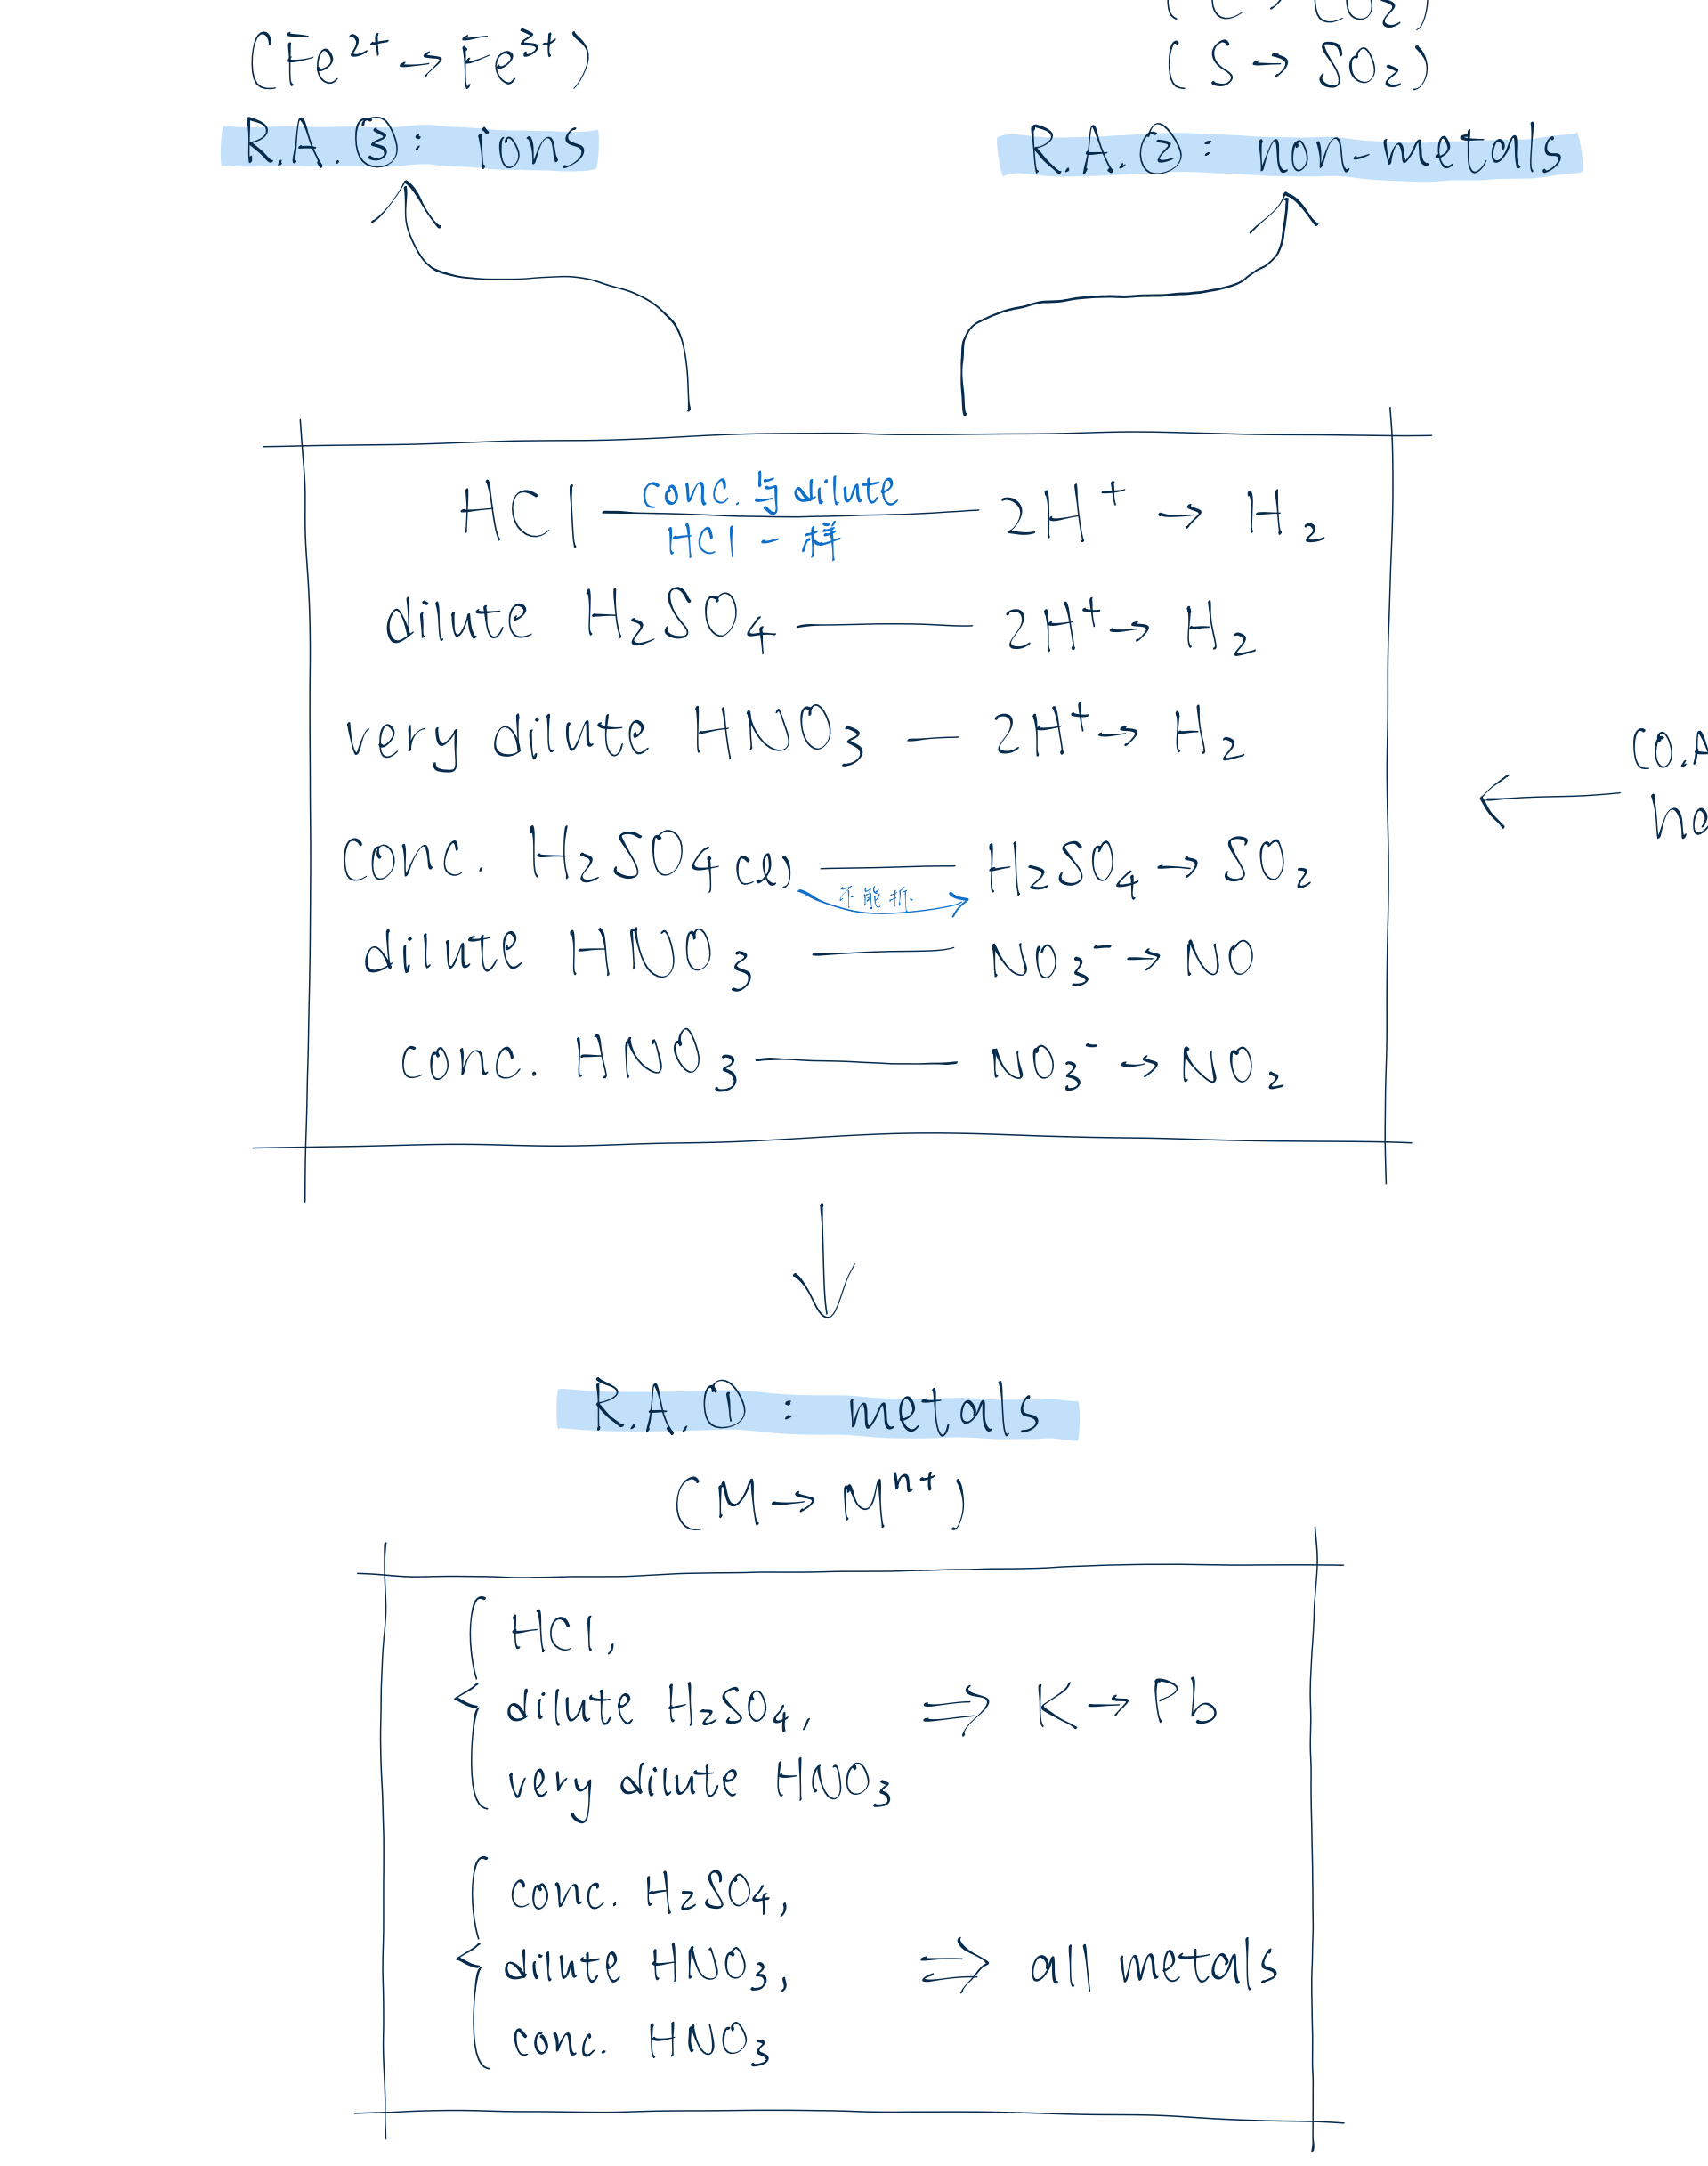 (Fe²⁺ → Fe³⁺)
R.A.③: ions
(S → SO₂)
R.A.②: non-metals
HCl —— 2H⁺ → H₂
conc.与dilute
HCl一样
dilute H₂SO₄ —— 2H⁺ → H₂
very dilute HNO₃ — 2H⁺ → H₂
conc. H₂SO₄(l) —— H₂SO₄ → SO₂
不能拆
dilute HNO₃ —— NO₃⁻ → NO
conc. HNO₃ —— NO₃⁻ → NO₂
R.A.①: metals
(M → Mⁿ⁺)
HCl,
dilute H₂SO₄, ⇒ K → Pb
very dilute HNO₃
conc. H₂SO₄,
dilute HNO₃, ⇒ all metals
conc. HNO₃